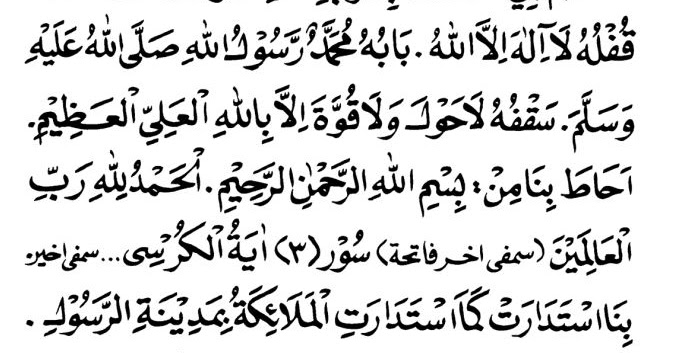 قُفْلُهُ لَآ اِلٰهَ اِلاَّ اللهُ . بَابُهُ مُحَمَّدٌ رَّسُوْلُ اللهِ صَلَّى اللهُ عَلَيْهِ
وَسَلَّمَ. سَقْفُهُ لَاحَوْلَ وَلَا قُوَّةَ اِلاَّ بِاللهِ الْعَلِيِّ الْعَظِيْمِ.
اَحَاطَ بِنَا مِنْ : بِسْمِ اللهِ الرَّحْمٰنِ الرَّحِيْمِ . اَلْحَمْدُ لِلّٰهِ رَبِّ
الْعَالَمِيْنَ (سمفى اخر فاتحة) سُوْرُ (٣) اٰيَةُ الْكُرْسِى ... سمفى اخير.
بِنَا اسْتَدَارَتْ كَمَا اسْتَدَارَتِ الْمَلَائِكَةُ بِمَدِيْنَةِ الرَّسُوْلِ .